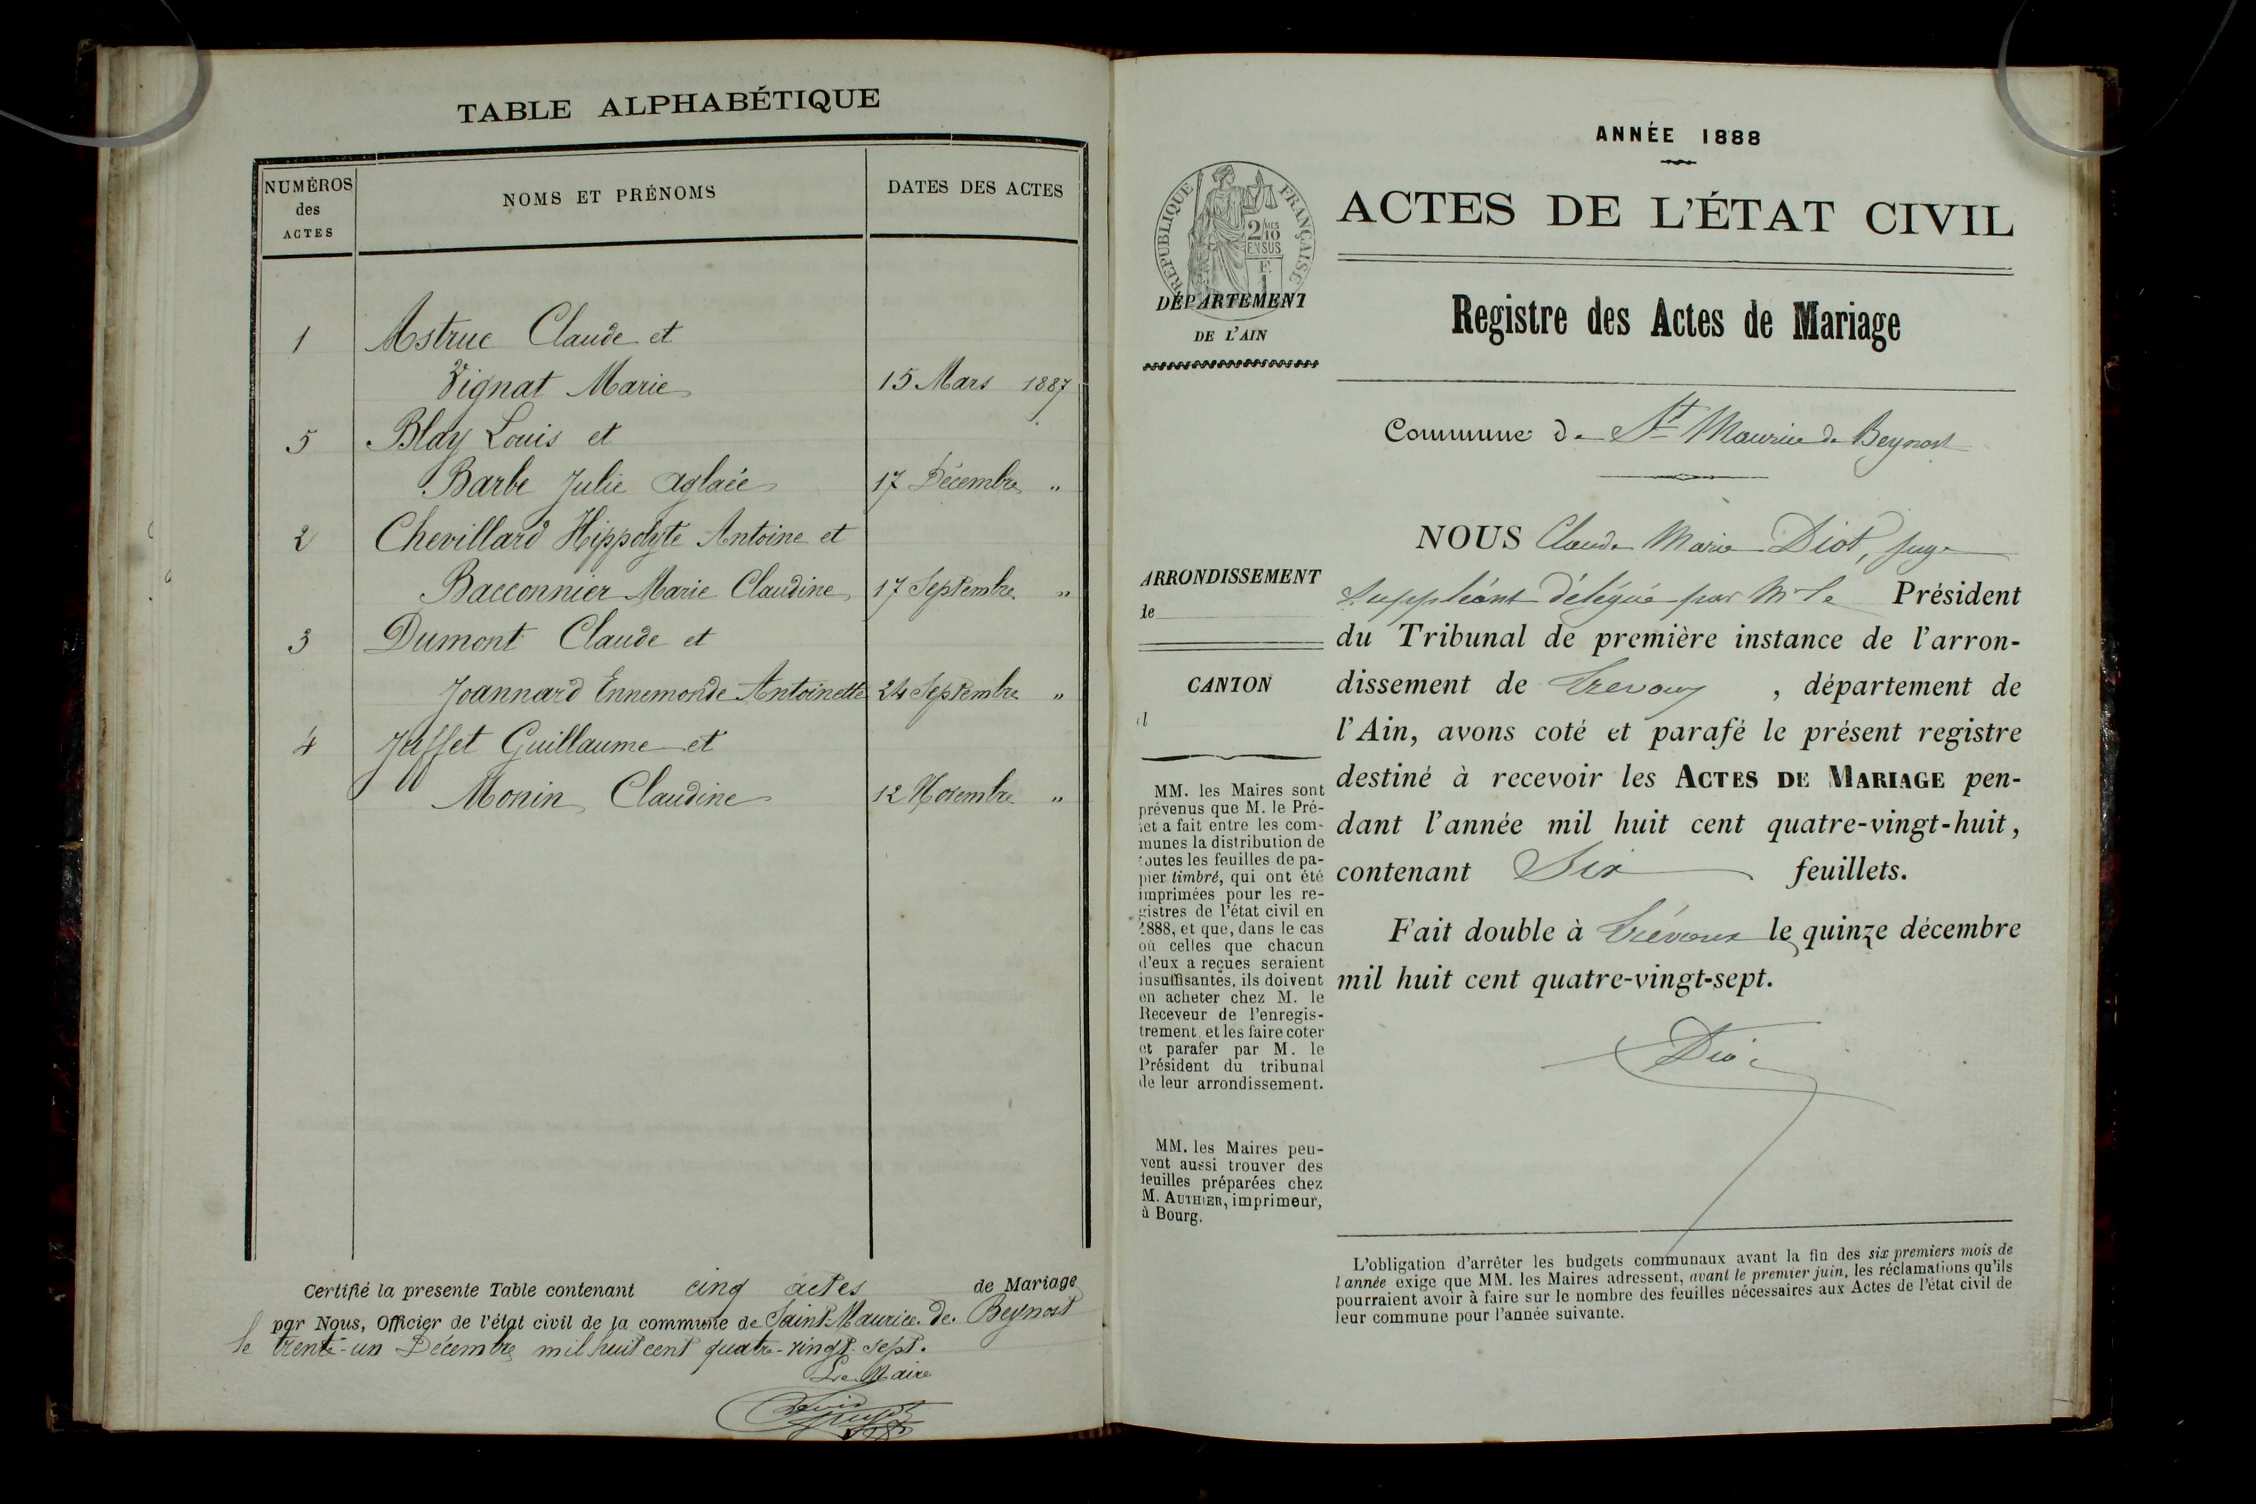 TABLE ALPHABÉTIQUE
NUMÉROS
des
ACTES
NOMS ET PRÉNOMS
DATES DES ACTES
1 Astruc Claude et
Vignat Marie 15 Mars 1887
5 Blay Louis et
Barbe Julie Aglaée 17 Décembre "
2 Chevillard Hippolyte Antoine et
Bacconnier Marie Claudine 17 Septembre "
3 Dumont Claude et
Joannard Ennemonde Antoinette 24 Septembre "
4 Joffet Guillaume et
Monin Claudine 12 Novembre "
Certifié la presente Table contenant cinq actes de Mariage
par Nous, Officier de l'état civil de la commune de Saint Maurice de Beynost
le trente-un Décembre mil huit cent quatre-vingt-sept.
Le Maire
ANNÉE 1888
ACTES DE L'ÉTAT CIVIL
RÉPUBLIQUE FRANÇAISE
2/10MES
EN SUS
DÉPARTEMENT
DE L'AIN
Registre des Actes de Mariage
Commune de St Maurice de Beynost
NOUS Claude Marie Diot, juge
suppléant délégué par Mr le Président
du Tribunal de première instance de l'arron-
dissement de Trevoux, département de
l'Ain, avons coté et parafé le présent registre
destiné à recevoir les ACTES DE MARIAGE pen-
dant l'année mil huit cent quatre-vingt-huit,
contenant Six feuillets.
Fait double à Trévoux le quinze décembre
mil huit cent quatre-vingt-sept.
Diot
ARRONDISSEMENT
de
CANTON
d
MM. les Maires sont
prévenus que M. le Pré-
fet a fait entre les com-
munes la distribution de
toutes les feuilles de pa-
pier timbré, qui ont été
imprimées pour les re-
gistres de l'état civil en
1888, et que, dans le cas
où celles que chacun
d'eux a reçues seraient
insuffisantes, ils doivent
en acheter chez M. le
Receveur de l'enregis-
trement et les faire coter
et parafer par M. le
Président du tribunal
de leur arrondissement.
MM. les Maires peu-
vent aussi trouver des
feuilles préparées chez
M. AUTHIER, imprimeur,
à Bourg.
L'obligation d'arrêter les budgets communaux avant la fin des six premiers mois de
l'année exige que MM. les Maires adressent, avant le premier juin, les réclamations qu'ils
pourraient avoir à faire sur le nombre des feuilles nécessaires aux Actes de l'état civil de
leur commune pour l'année suivante.